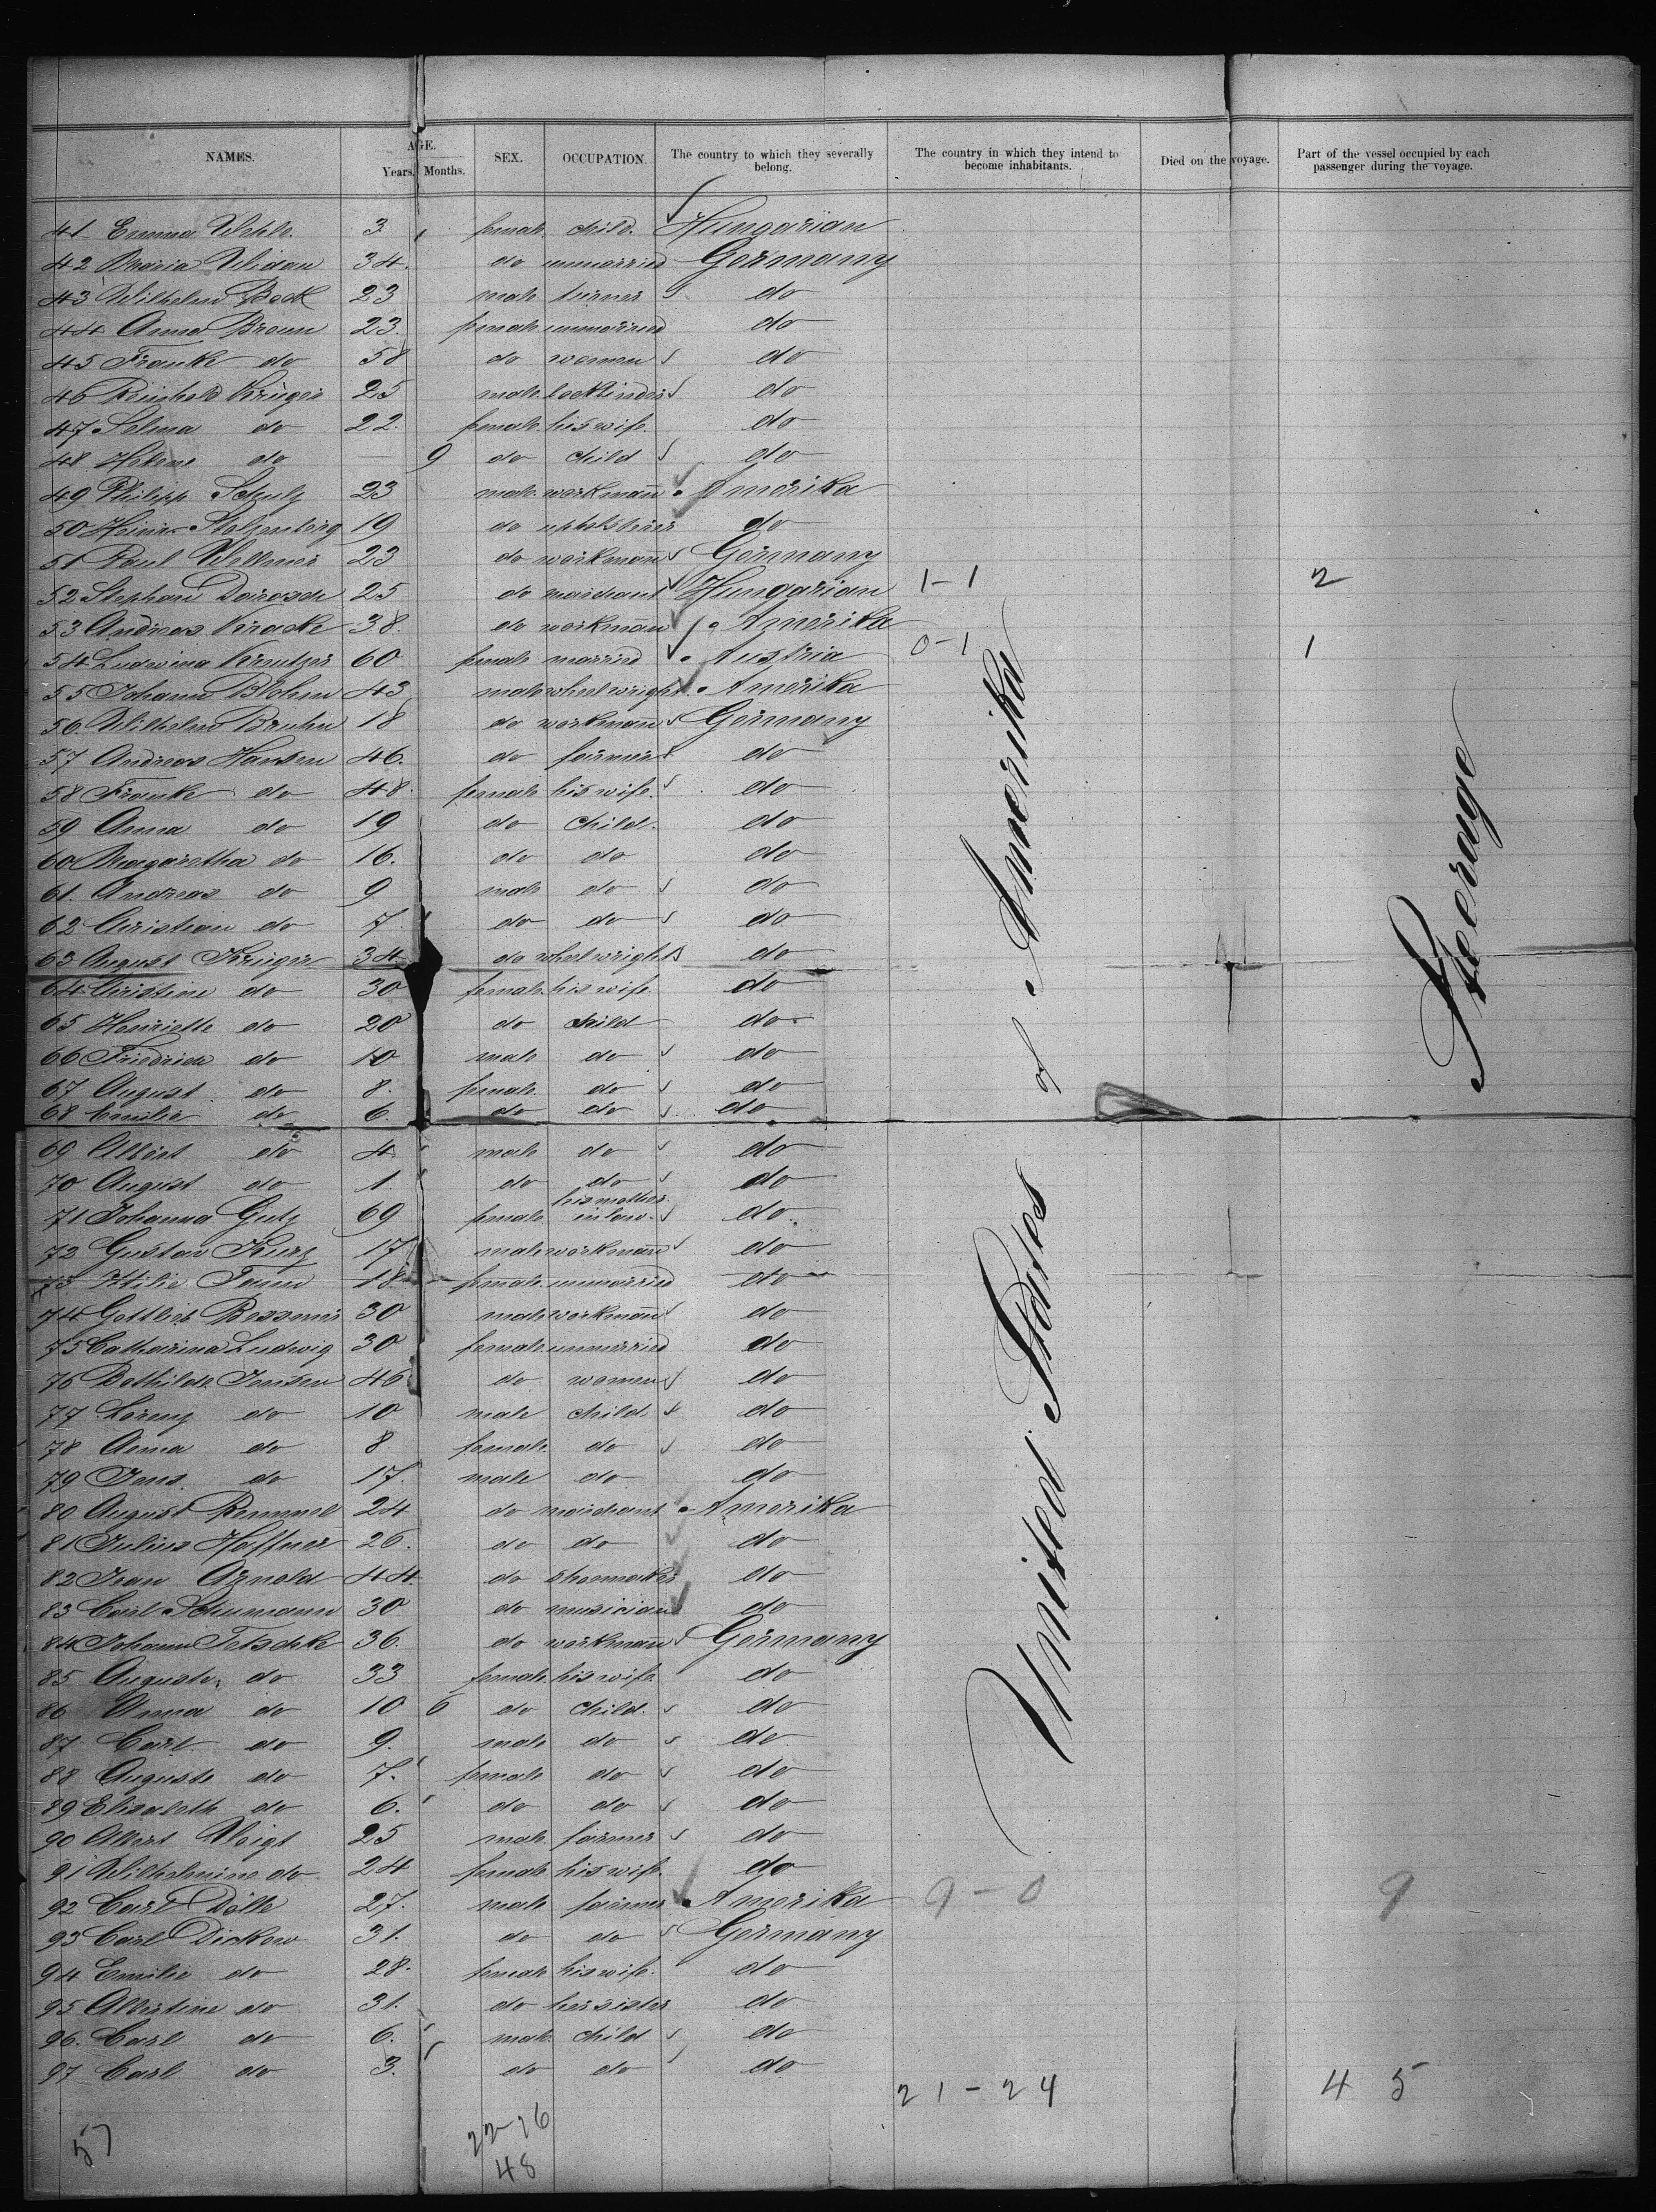 NAMES. AGE. SEX. OCCUPATION. The country to which they severally belong. The country in which they intend to become inhabitants. Died on the voyage. Part of the vessel occupied by each passenger during the voyage.
Years. Months.
41 Emma 3 female child. Hungarian
42 Maria 34. do unmarried Germany
43 Wilhelm Bock 23 male turner do
44 Anna Braun 23. female unmarried do
45 Frauke do 58 do women do
46 Reinhold Krüger 25 male do
47 Selma do 22. female his wife. do
48 Helene do — 9 do child do
49 Philipp Schulz 23 male workmann Amerika
50 Heinr. Stelzenberg 19 do upholsterer do
51 Paul 23 do workmann Germany
52 Stephan 25 do marchant Hungarian 1-1 2
53 Andreas Kracke 38. do workmann Amerika
54 Ludwina Kreutzer 60 female married Austria 0-1 1
55 Johann Blohm 43 male wheelwright. Amerika
56 Wilhelm Bruhn 18 do workmann Germany
57 Andreas Hansen 46. do farmer do
58 Frauke do 48. female his wife. do
59 Anna do 19 do child. do
60 Margaretha do 16. do do do
61. Andreas do 9 male do do
62 Christian do 7. do do do
63 August Krüger 34 do wheelwright do
64 Christine do 30 female his wife do
65 Henriette do 20 do child do
66 Friedrich do 10 male do do
67 August do 8. female do do
68 Emilie do 6. do do do
69 Albert do 4 male do do
70 August do 1 do do do
71 Johanna Gutz 69 female his mother in law. do.
72 Gustav Kurz 17 male workmann do
73 18 female unmarried do
74 Gottlieb 30 male workmann do
75 Catharina Ludwig 30 female unmarried do
76 Bothilde Jensen 46 do women do
77 Lorenz do 10 male child do
78 Anna do 8 female. do do
79 Jens. do 17. male do do
80 August Remmel 24 do marchant Amerika
81 Julius Haffner 26. do do do
82 Jean Arnold 44. do shoemaker do
83 Carl Schumann 30 do musician do
84 Johann Tetschke 36. do workmann Germany
85 Auguste do 33 female his wife. do
86 Anna do 10 6 do child. do
87. Carl do 9. male do do
88 Auguste do 7. female do do
89 Elisabeth do 6. do do do
90 Albert Voigt 25 male. farmer do
91 Wilhelmine do 24 female his wife. do
92 Carl Dölle 27. male farmer Amerika 9-0 9
93 Carl Dickow 31. do do Germany
94 Emilie do 28. female his wife. do
95 Albertine do 31. do her sister do
96. Carl do 6. male child do
97 Carl do 3. do do do
United States of Amerika
Steerage
21-24 45
57 22-26
48